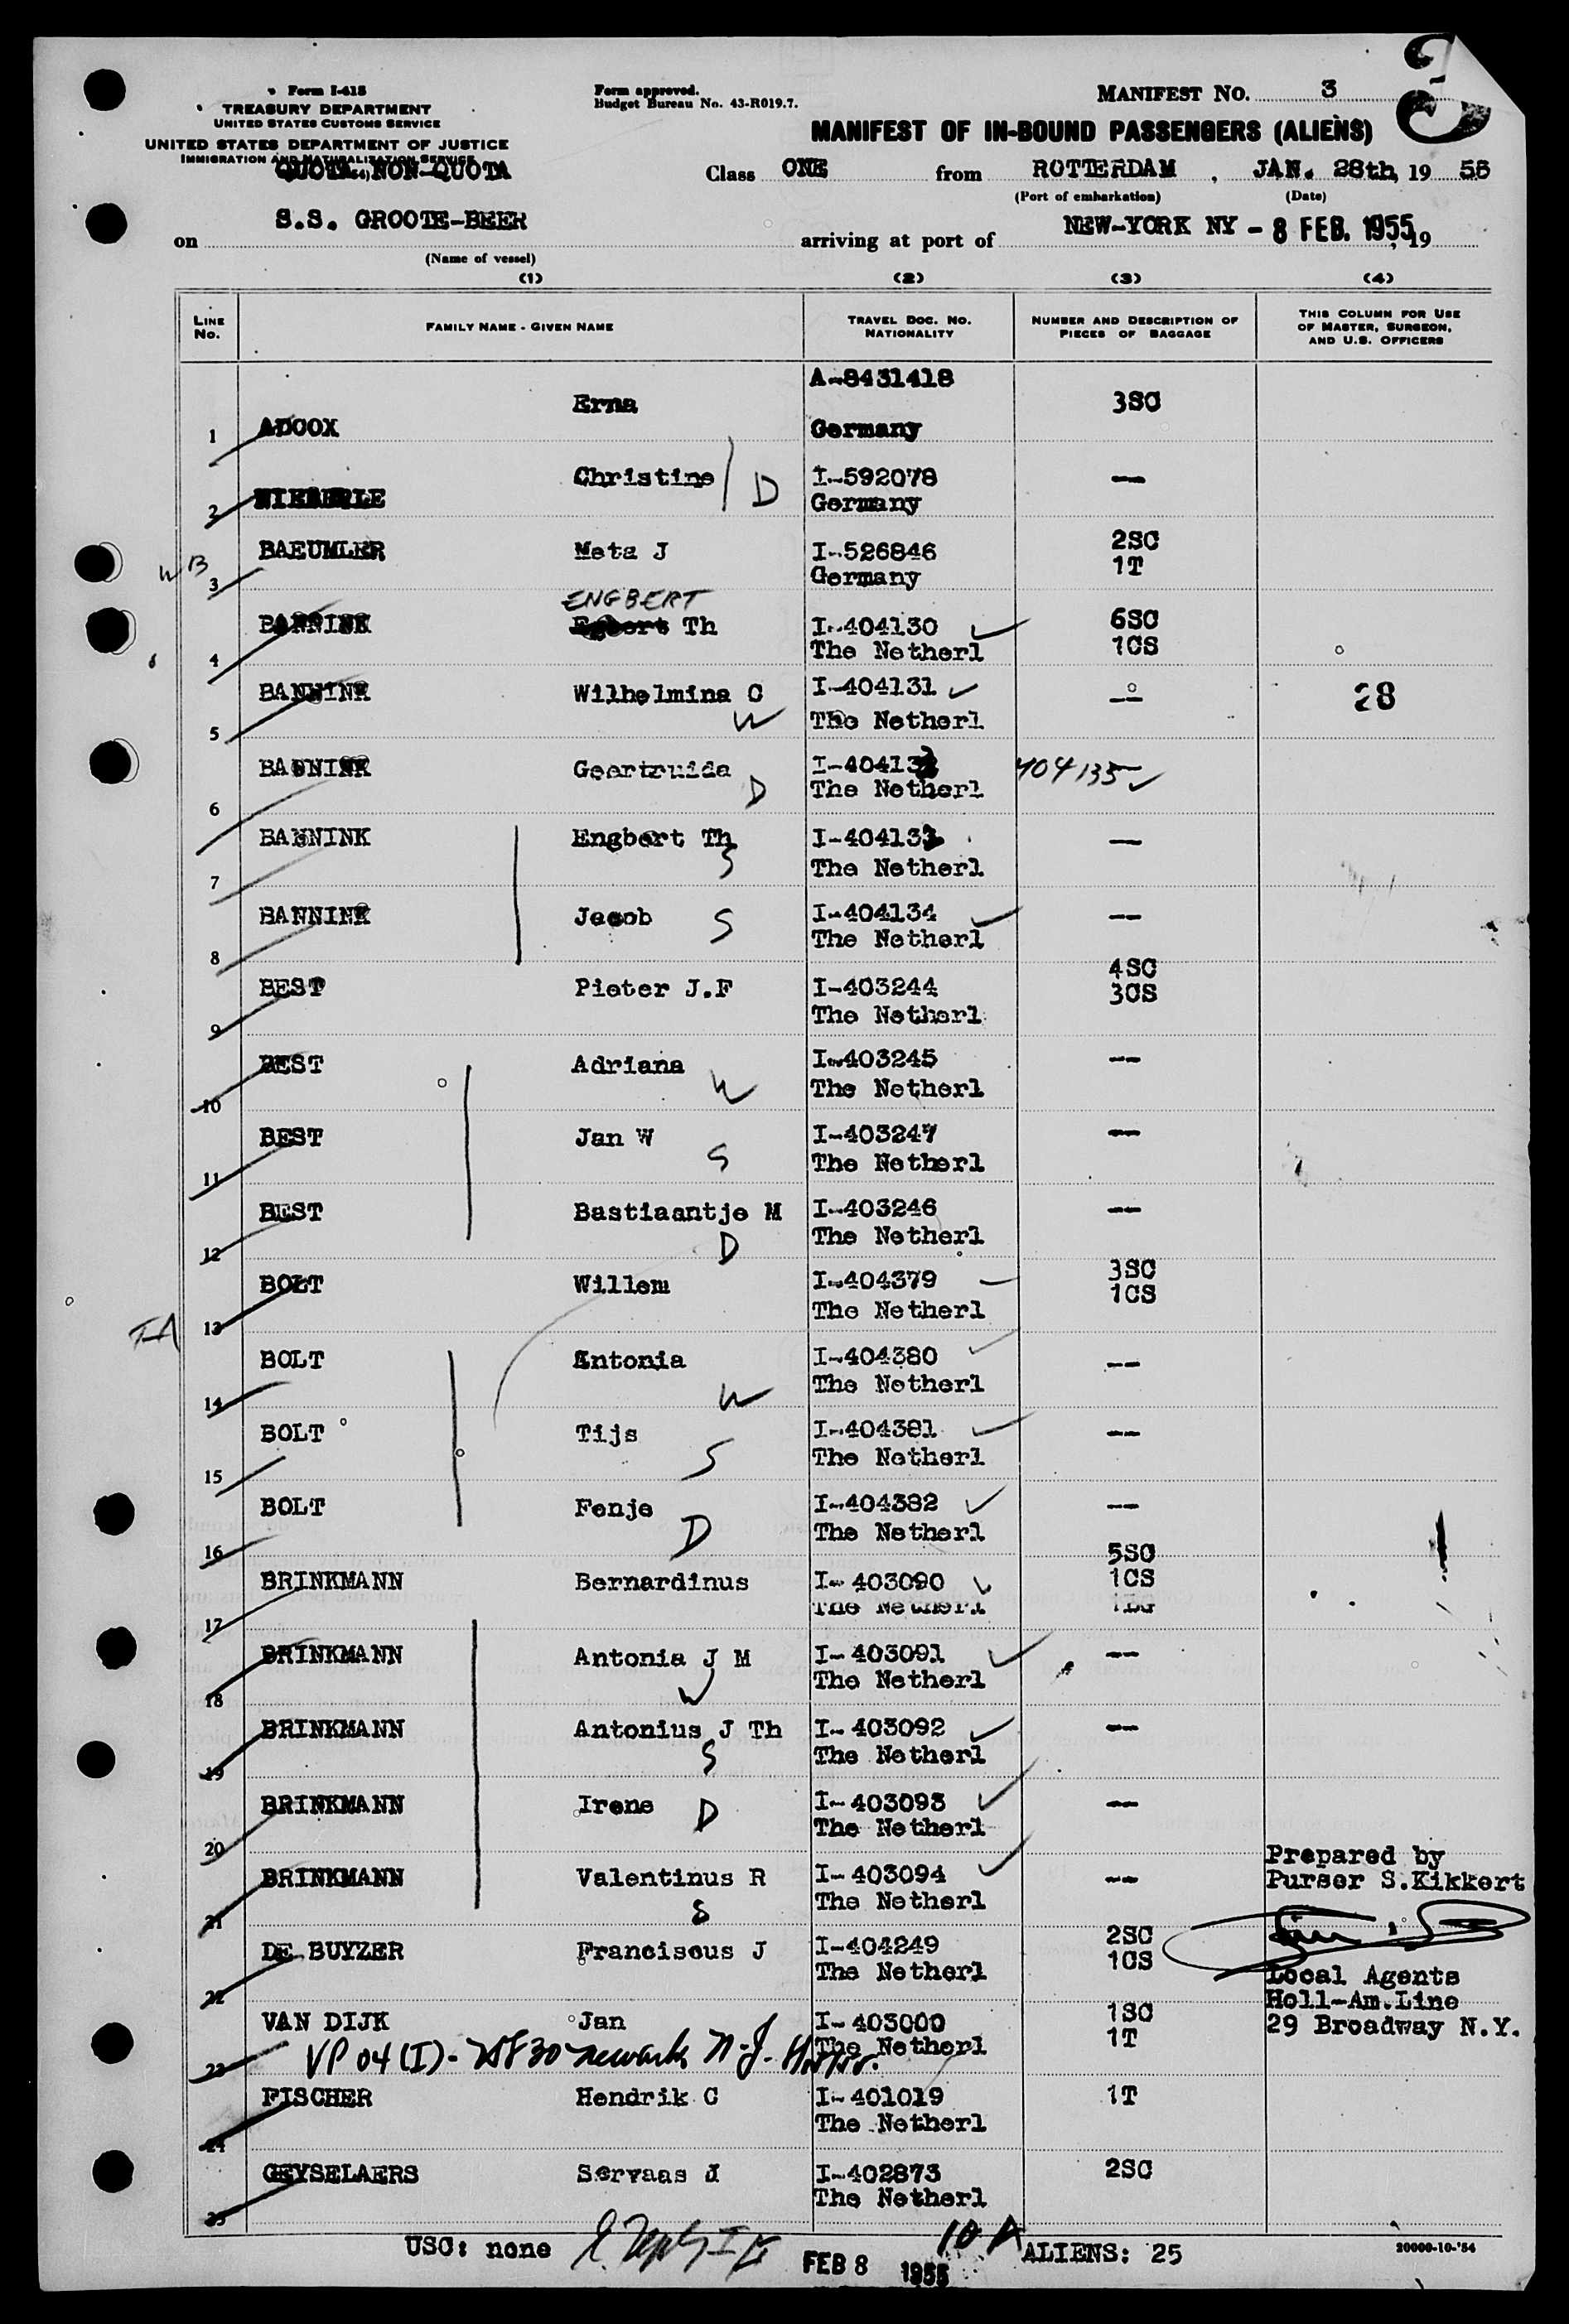 3
Form I-418
TREASURY DEPARTMENT
UNITED STATES CUSTOMS SERVICE
UNITED STATES DEPARTMENT OF JUSTICE
IMMIGRATION AND NATURALIZATION SERVICE
QUOTA NON-QUOTA
Form approved.
Budget Bureau No. 43-R019.7.
MANIFEST NO. 3
MANIFEST OF IN-BOUND PASSENGERS (ALIENS)
Class ONE from ROTTERDAM, JAN. 28th, 19 55
(Port of embarkation) (Date)
on S.S. GROOTE-BEER arriving at port of NEW-YORK NY - 8 FEB. 1955, 19
(Name of vessel)
(1) (2) (3) (4)
LINE No. FAMILY NAME - GIVEN NAME TRAVEL DOC. NO. NATIONALITY NUMBER AND DESCRIPTION OF PIECES OF BAGGAGE THIS COLUMN FOR USE OF MASTER, SURGEON, AND U.S. OFFICERS
1 ADCOX Erna A-8431418 Germany 3SC
2 Christine D I-592078 Germany --
WB 3 BAEUMLER Meta J I-526846 Germany 2SC 1T
ENGBERT
4 BANNINK Egbert Th I-404130 The Netherl 6SC 1CS
5 BANNINK Wilhelmina C W I-404131 The Netherl -- 28
6 BANNINK Geertruida D I-404132 The Netherl 404135
7 BANNINK Engbert Th S I-404133 The Netherl --
8 BANNINK Jacob S I-404134 The Netherl --
9 BEST Pieter J.F I-403244 The Netherl 4SC 3CS
10 BEST Adriana W I-403245 The Netherl --
11 BEST Jan W S I-403247 The Netherl --
12 BEST Bastiaantje M D I-403246 The Netherl --
IA 13 BOLT Willem I-404379 The Netherl 3SC 1CS
14 BOLT Antonia W I-404380 The Netherl --
15 BOLT Tijs S I-404381 The Netherl --
16 BOLT Fenje D I-404382 The Netherl --
17 BRINKMANN Bernardinus I-403090 The Netherl 5SC 1CS
18 BRINKMANN Antonia J M W I-403091 The Netherl --
19 BRINKMANN Antonius J Th S I-403092 The Netherl --
20 BRINKMANN Irene D I-403093 The Netherl --
21 BRINKMANN Valentinus R S I-403094 The Netherl --
Prepared by
Purser S.Kikkert
22 DE BUYZER Franciscus J I-404249 The Netherl 2SC 1CS
Local Agents
Holl-Am.Line
29 Broadway N.Y.
23 VAN DIJK Jan I-403000 The Netherl 1SC 1T
VP 04 (I)- Newark N.J.
24 FISCHER Hendrik C I-401019 The Netherl 1T
25 GEYSELAERS Servaas J I-402873 The Netherl 2SC
USC: none
10 A
ALIENS: 25
FEB 8 1955
20000-10-'54